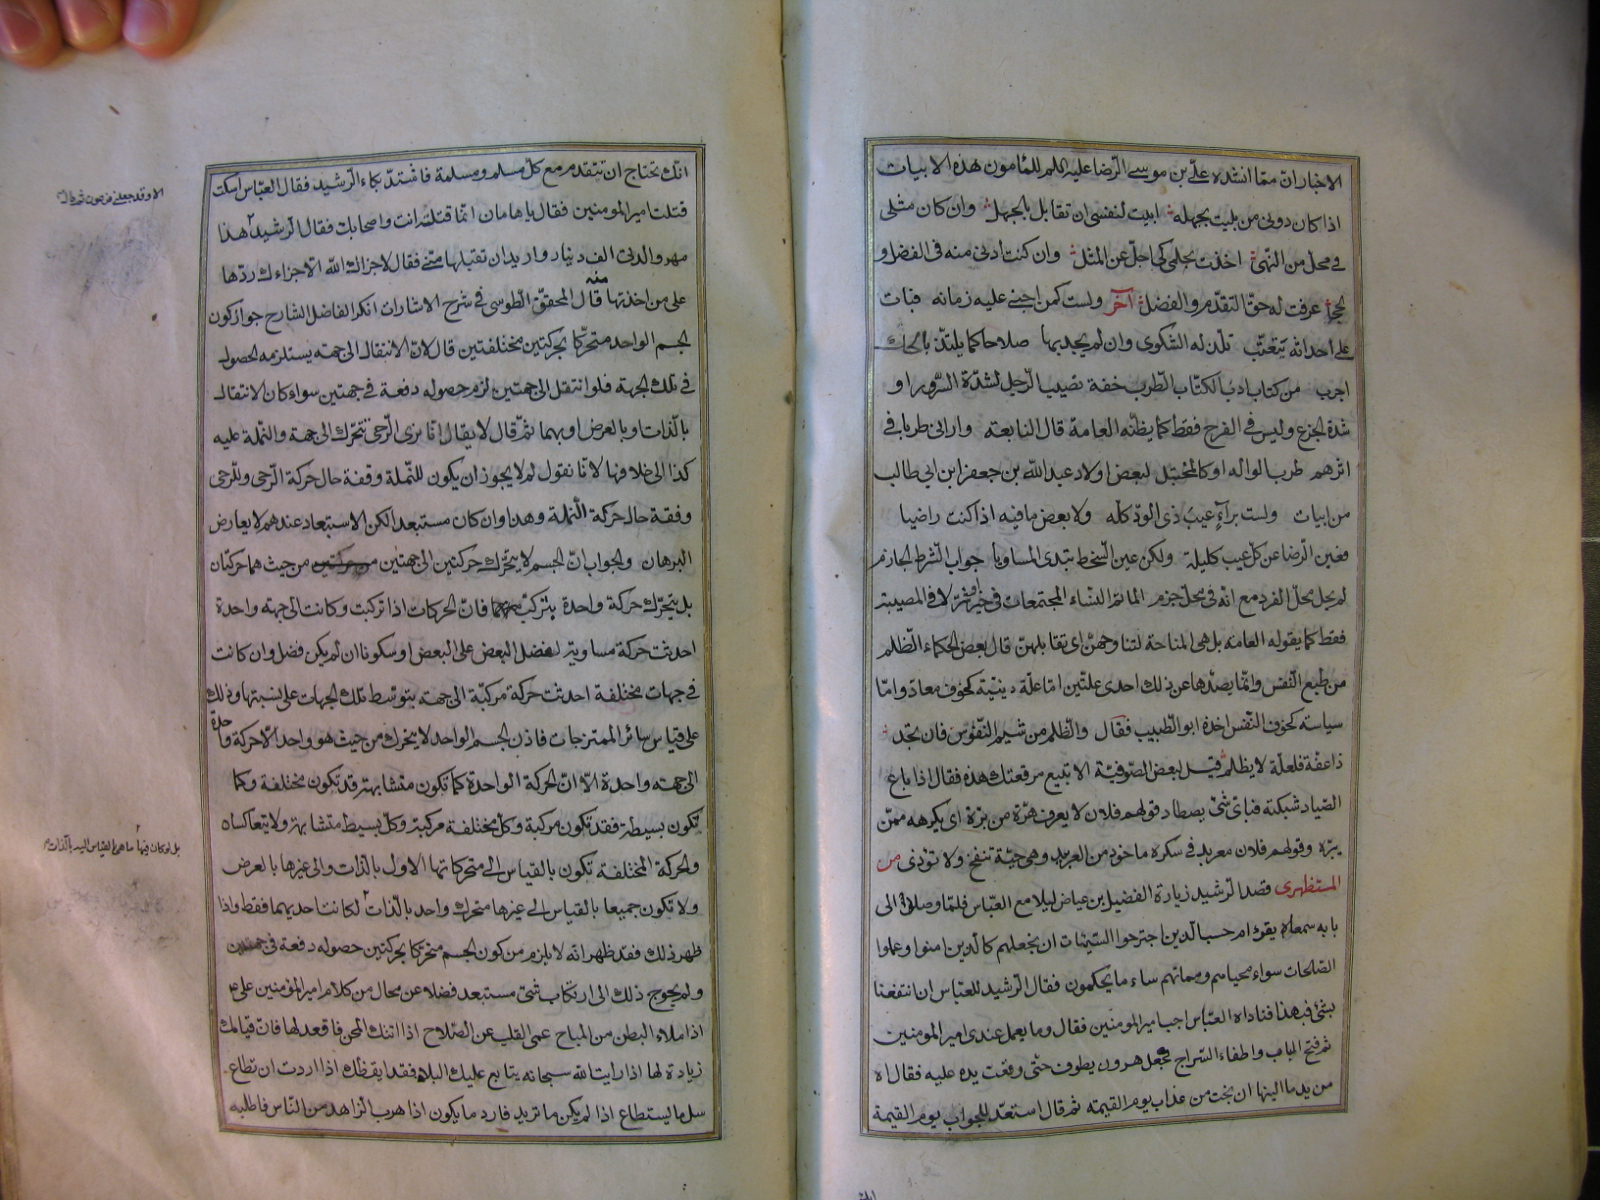 الاخبار ان مما انشده علي بن موسى الرضا عليه السلام للمأمون هذه الابيات
اذا كان دوني من بليت بجهله ابيت لنفسي ان تقابل بالجهل وان كان مثلي
في محل من النهى اخذت بحلمي كي اجل عن المثل وان كنت ادنى منه في الفضل و
الحجى عرفت له حق التقدم والفضل آخر ولست كمن اخنى عليه زمانه فبات
على احداثه يتعتب تلذ له الشكوى وان لم يجد بها صلاحا كما يلتذ بالحك
اجرب من كتاب ادب الكتاب الطرب خفة تصيب الرجل لشدة السرور او
شدة الجزع وليس في الفرح فقط كما يظنه العامة قال النابغة واراني طربا في
اثرهم طرب الواله او كالمختبل لبعض اولاد عبد الله بن جعفر ابن ابي طالب
من ابيات ولست براء عيب ذي الود كله ولا بعض ما فيه اذا كنت راضيا
فعين الرضا عن كل عيب كليلة ولكن عين السخط تبدي المساويا جواب الشرط الجازم
لم يحل محل الفرد مع انه في محل جزم المأتم النساء المجتمعات في خير او شر لا في المصيبة
فقط كما يقوله العامة بل هي المناحة لتناوحهن اي تقابلهن قال بعض الحكماء الظلم
من طبع النفس وانما يصدها عن ذلك احدى علتين اما علة دينية كخوف معاد واما
سياسته كخوف النفس اخذه ابو الطيب فقال والظلم من شيم النفوس فان تجد
ذا عفة فلعلة لا يظلم قيل لبعض الصوفية الا تبيع مرقعتك هذه فقال اذا باع
الصياد شبكته فباي شئ يصطاد قولهم فلان لا يعرف هرة من برة اي يكرهه ممن
يبره وقولهم فلان معربد في سكره ماخوذ من العربد وهي حية تنفخ ولا تؤذي من
المستظهري قصد الرشيد زيارة الفضيل بن عياض ليلا مع العباس فلما وصلا الى
بابه سمعاه يقرء ام حسب الذين اجترحوا السيئات ان نجعلهم كالذين امنوا وعملوا
الصالحات سواء محياهم ومماتهم ساء ما يحكمون فقال الرشيد للعباس ان انتفعنا
بشئ فبهذا فناداه العباس اجب امير المؤمنين فقال وما يعمل عندي امير المؤمنين
ثم فتح الباب واطفاء السراج فجعل هرون يطوف حتى وقعت يده عليه فقال اه
من يد ما الينها ان نجت من عذاب يوم القيمة ثم قال استعد للجواب يوم القيمة
انك تحتاج ان تتقدم مع كل مسلم ومسلمة فاشتد بكاء الرشيد فقال العباس اسكت
قتلت امير المؤمنين فقال يا هامان انما قتلته انت واصحابك فقال الرشيد هذا
مهر والدتي الف دينار واريد ان تقبلها مني فقال لا جزاك الله الا جزاءك ردها
على من اخذتها منه قال المحقق الطوسي في شرح الاشارات انكر الفاضل الشارح جواز كون
الجسم الواحد متحركا بحركتين مختلفتين قال لان الانتقال الى جهة يستلزمه الحصول
في تلك الجهة فلو انتقل الى جهتين لزم حصوله دفعة في جهتين سواء كان الانتقال
بالذات او بالعرض او بهما ثم قال لا يقال انا نرى الرحى تتحرك الى جهة والنملة عليه
كذا الى خلافها لانا نقول لم لا يجوز ان يكون للنملة وقفة حال حركة الرحى وللرحى
وقفة حال حركة النملة وهذا وان كان مستبعد الكن الاستبعاد عندهم لا يعارض
البرهان والجواب ان الجسم لا يتحرك حركتين الى جهتين من حيث هما حركتان
بل يتحرك حركة واحدة يتركب منهما فان الحركات اذا تركبت وكانت الى جهة واحدة
احدثت حركة مساوية لفضل البعض على البعض او سكونا ان لم يكن فضل وان كانت
في جهات مختلفة احدثت حركة مركبة الى جهة يتوسط تلك الجهات على نسبتها وذلك
على قياس سائر الممتزجات فاذن الجسم الواحد لا يتحرك من حيث هو واحد الا حركة واحدة
الى جهة واحدة الا ان الحركة الواحدة كما تكون متشابهة قد تكون مختلفة وكما
تكون بسيطة فقد تكون مركبة وكل مختلفة مركبة وكل بسيط متشابهة ولا يتعاكسان
والحركة المختلفة تكون بالقياس الى متحركاتها الاول بالذات والى غيرها بالعرض
ولا تكون جميعا بالقياس الى غيرها متحرك واحد بالذات لكانت احديهما فقط واذا
ظهر ذلك فقد ظهر انه لا يلزم من كون الجسم متحركا بحركتين حصوله دفعة في جهتين
ولم يحوج ذلك الى ارتكاب شئ مستبعد فضلا عن محال من كلام امير المؤمنين على ع
اذا ملاء البطن من المباح عمى القلب عن الصلاح اذا اتتك المحن فاقعد لها فان قيامك
زيادة لها اذا رايت الله سبحانه يتابع عليك البلاء فقد ايقظك اذا اردت ان تطاع
سل ما يستطاع اذا لم يكن ما تريد فارد ما يكون اذا هرب الزاهد من الناس فاطلبه
بل لو كان فيها ما هي بالقياس اليه بالذات